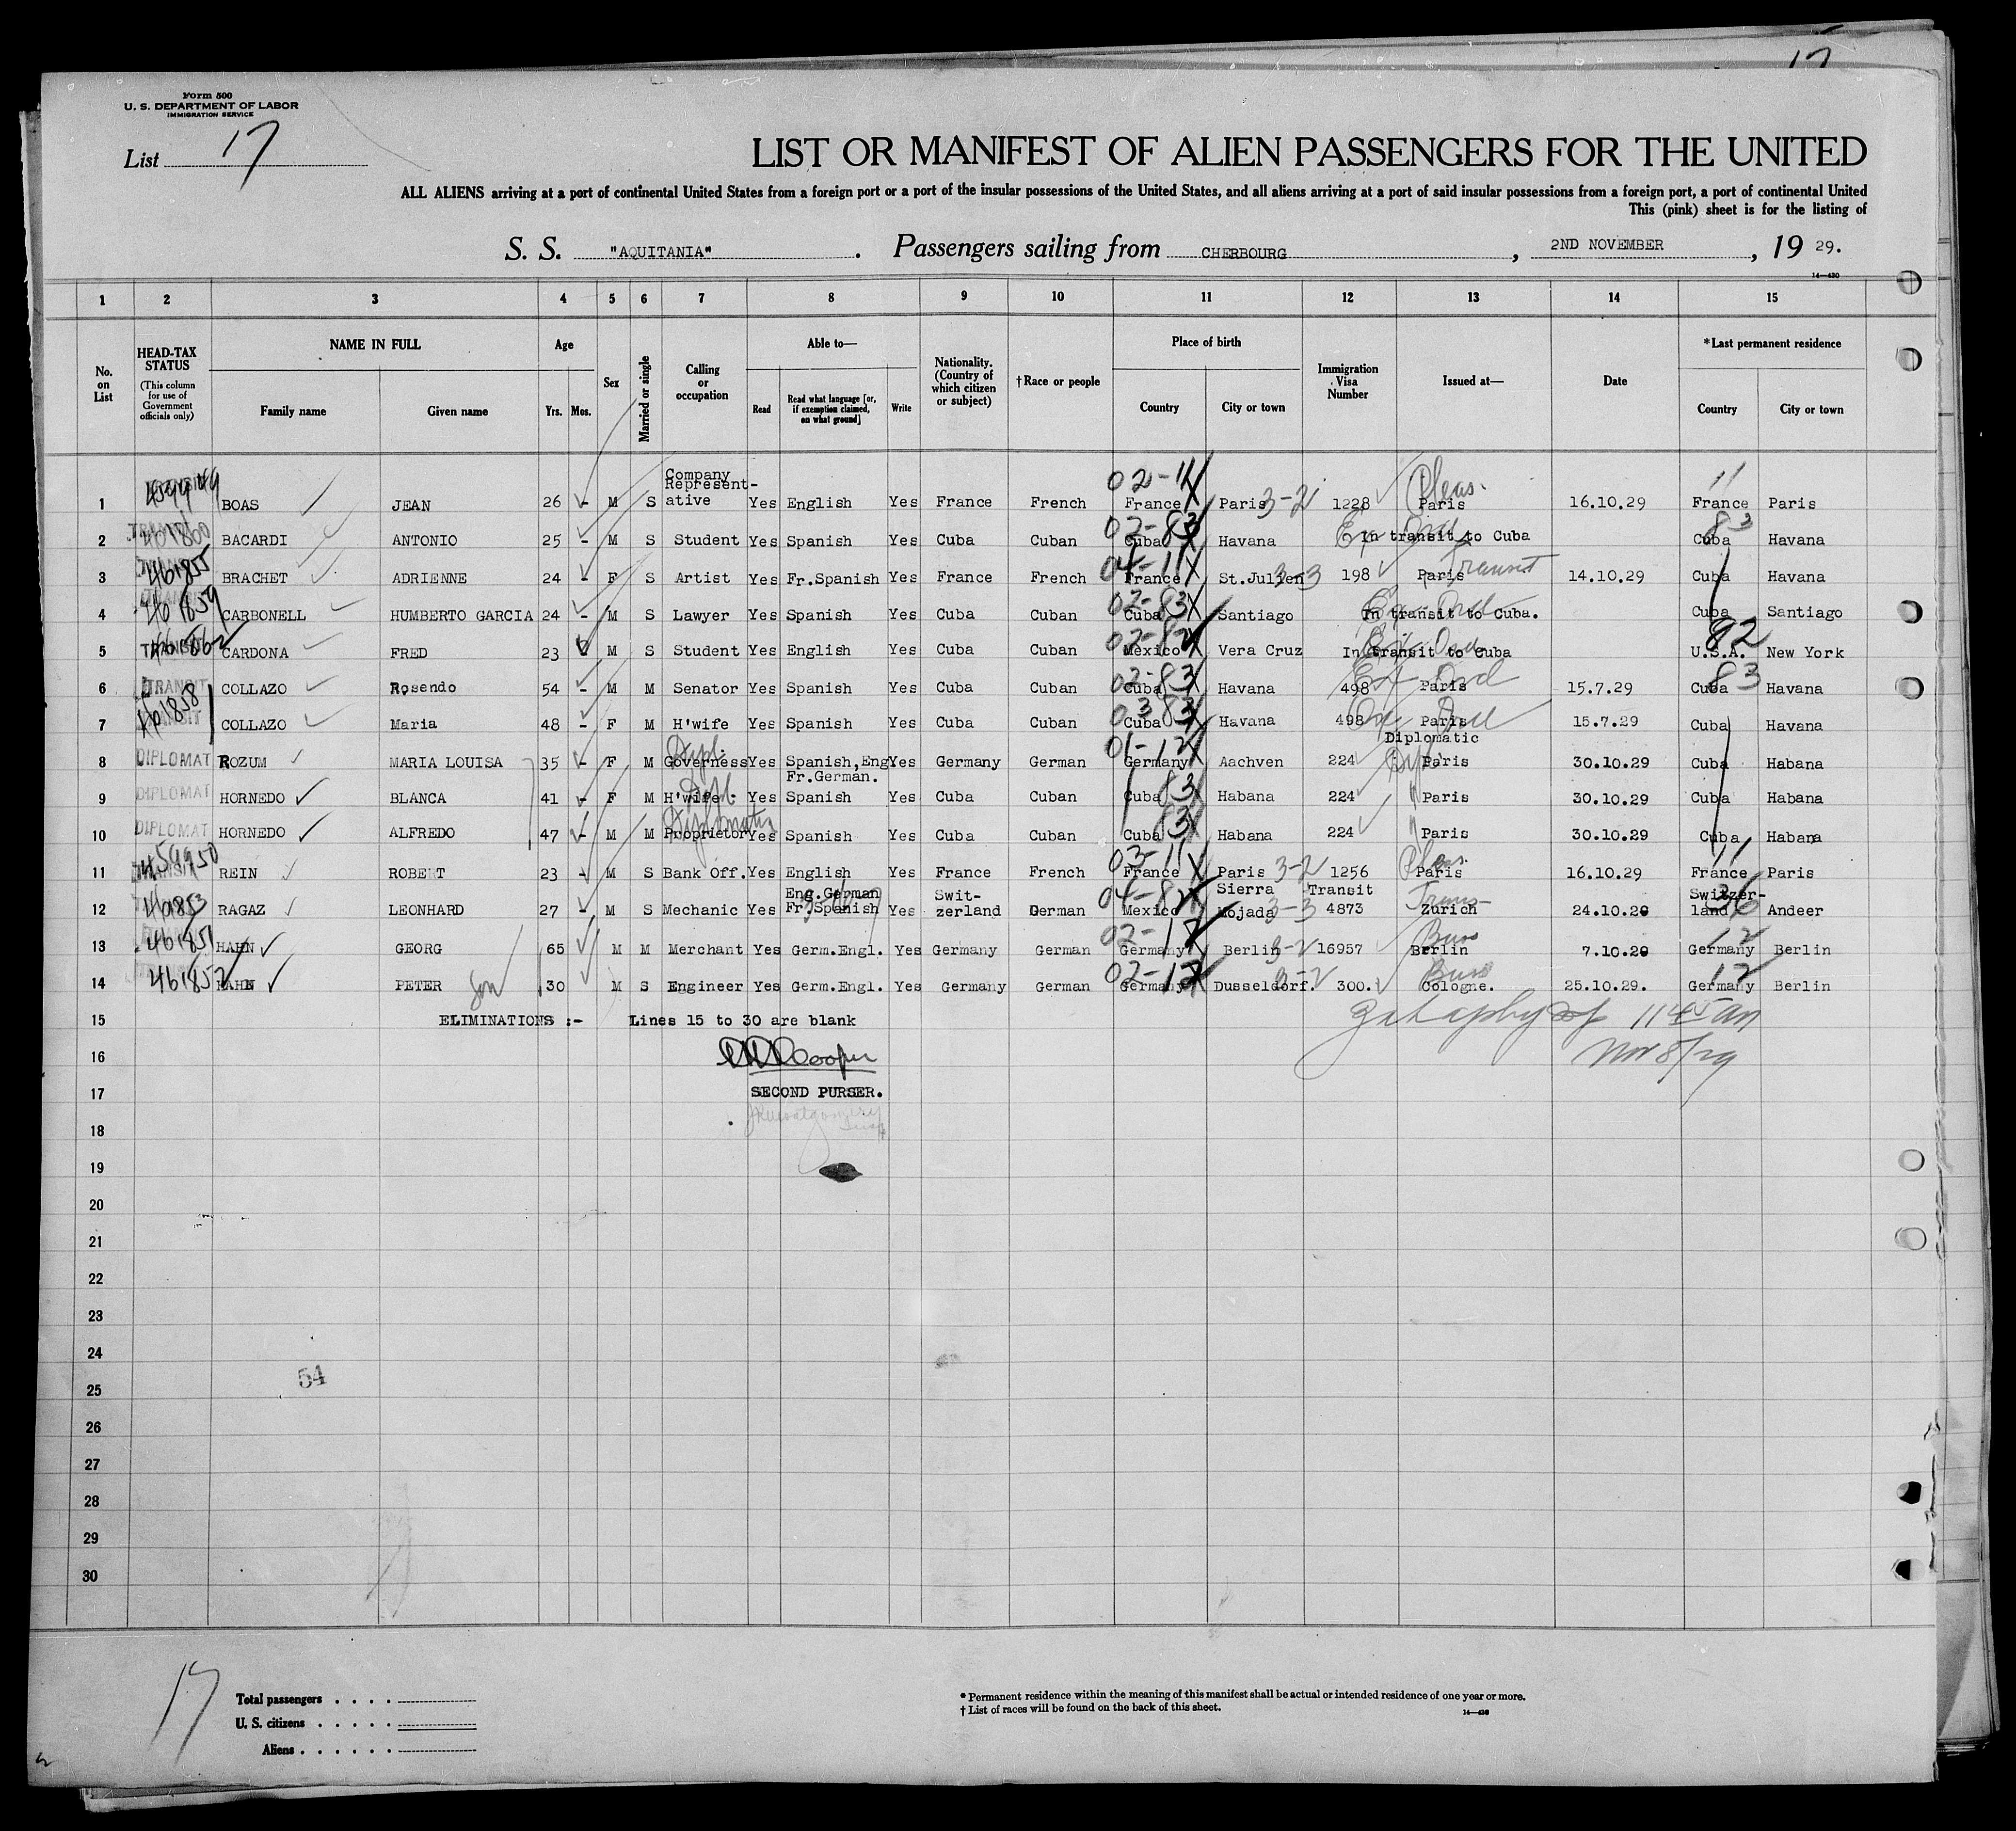 17
Form 500
U. S. DEPARTMENT OF LABOR
IMMIGRATION SERVICE
List 17
LIST OR MANIFEST OF ALIEN PASSENGERS FOR THE UNITED
ALL ALIENS arriving at a port of continental United States from a foreign port or a port of the insular possessions of the United States, and all aliens arriving at a port of said insular possessions from a foreign port, a port of continental United
This (pink) sheet is for the listing of
S. S. "AQUITANIA". Passengers sailing from CHERBOURG, 2ND NOVEMBER, 19 29.
14—430
1 2 3 4 5 6 7 8 9 10 11 12 13 14 15
No. on List
HEAD-TAX STATUS (This column for use of Government officials only)
NAME IN FULL
Family name Given name
Age
Yrs. Mos.
Sex
Married or single
Calling or occupation
Able to—
Read
Read what language [or, if exemption claimed, on what ground]
Write
Nationality. (Country of which citizen or subject)
†Race or people
Place of birth
Country City or town
Immigration Visa Number
Issued at—
Date
*Last permanent residence
Country City or town
1 BOAS JEAN 26 - M S Company Represent-ative Yes English Yes France French 02-11 France Paris 3-2 1228 Pleas. Paris 16.10.29 11 France Paris
2 TRANSIT 461860 BACARDI ANTONIO 25 - M S Student Yes Spanish Yes Cuba Cuban 02-83 Cuba Havana In transit to Cuba 83 Cuba Havana
3 461855 BRACHET ADRIENNE 24 - F S Artist Yes Fr.Spanish Yes France French 04-11 France St.Julien 3-3 198 Transit Paris 14.10.29 Cuba Havana
4 461859 CARBONELL HUMBERTO GARCIA 24 - M S Lawyer Yes Spanish Yes Cuba Cuban 02-83 Cuba Santiago Ex Ord In transit to Cuba. Cuba Santiago
5 TRANSIT 461862 CARDONA FRED 23 M S Student Yes English Yes Cuba Cuban 02-82 Mexico Vera Cruz Ex Ord In transit to Cuba 92 U.S.A. New York
6 TRANSIT COLLAZO Rosendo 54 - M M Senator Yes Spanish Yes Cuba Cuban 02-83 Cuba Havana 498 Ex Ord Paris 15.7.29 83 Cuba Havana
7 461858 COLLAZO Maria 48 - F M H'wife Yes Spanish Yes Cuba Cuban 03 83 Cuba Havana 498 Ex Ord Paris 15.7.29 Cuba Havana
8 DIPLOMAT ROZUM MARIA LOUISA 35 - F M Dipl. Governess Yes Spanish,Eng Fr.German. Yes Germany German 01-12 Germany Aachven 224 Diplomatic Paris 30.10.29 Cuba Habana
9 DIPLOMAT HORNEDO BLANCA 41 - F M Dipl. H'wife Yes Spanish Yes Cuba Cuban 83 Cuba Habana 224 " Paris 30.10.29 Cuba Habana
10 DIPLOMAT HORNEDO ALFREDO 47 - M M Diplomatic Proprietor Yes Spanish Yes Cuba Cuban 83 Cuba Habana 224 " Paris 30.10.29 Cuba Habana
11 459950 REIN ROBERT 23 - M S Bank Off. Yes English Yes France French 03-11 France Paris 3-2 1256 Pleas. Paris 16.10.29 11 France Paris
12 461853 RAGAZ LEONHARD 27 - M S Mechanic Yes Eng.German Fr.Spanish Yes Swit-zerland German 04-82 Mexico Sierra Mojada 3-3 Transit 4873 Trans- Zurich 24.10.29 36 Switzer-land Andeer
13 461851 HAHN GEORG 65 M M Merchant Yes Germ.Engl. Yes Germany German 02-12 Germany Berlin 3-2 16957 Buss Berlin 7.10.29 12 Germany Berlin
14 461852 HAHN PETER son 30 M S Engineer Yes Germ.Engl. Yes Germany German 02-12 Germany Dusseldorf. 3-2 300. Buss Cologne. 25.10.29. 12 Germany Berlin
15 ELIMINATIONS :- Lines 15 to 30 are blank
11 45 am
16 Cooper
Nov 8/29
17 SECOND PURSER.
18
19
20
21
22
23
24
54
25
26
27
28
29
30
17
Total passengers . . . .
U. S. citizens . . . . .
Aliens . . . . . .
* Permanent residence within the meaning of this manifest shall be actual or intended residence of one year or more.
† List of races will be found on the back of this sheet.
14—430